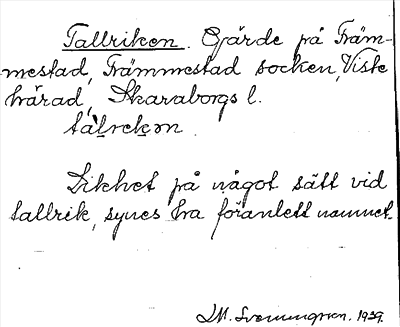 Tallriken. Gjärde på Främ-
mestad, Främmestad socken, Viste
härad, Skaraborgs l.
tal̥rekən
Likhet på något sätt vid
tallrik, synes ha föranlett namnet.
I.M. Svenungsson. 1939.